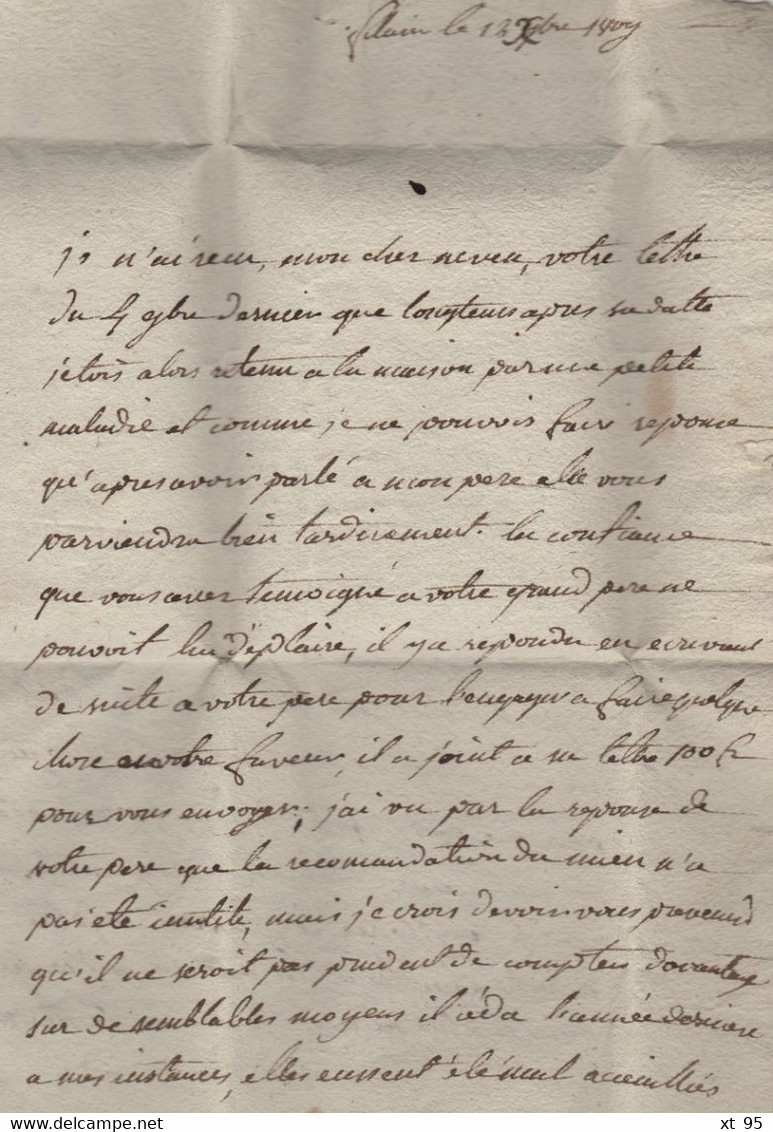 le 12 Xbre 1809
je n'ai recu, mon cher neveu, votre lettre
du 4 9bre dernier que longtems apres sa datte
j'etois alors retenu a la maison par une petite
maladie et comme je ne pouvois faire reponse
qu'apres avoir parlé a mon pere elle vous
parviendra bien tardivement. la confiance
que vous avez temoigné a votre grand pere ne
pouvoit lui déplaire, il y a repondu en ecrivant
de suite a votre pere pour l'engager a faire quelque
chose en votre faveur, il a joint a sa lettre 100 fr
pour vous envoyer; j'ai vu par la reponse de
votre pere que la recomandation du mien n'a
pas eté inutile, mais je crois devoir vous prevenir
qu'il ne seroit pas prudent de compter davantage
sur de semblables moyens il céda l'année derniere
a mes instances, elles eussent été mal acceuillies
xt 95